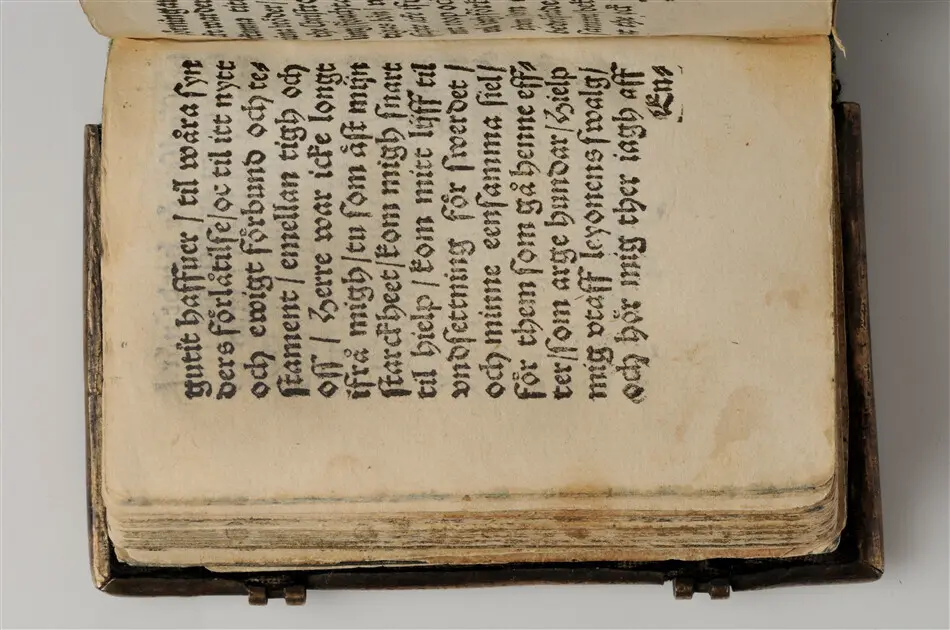 gutit haffuer / til wåra syn
ders förlåtilse/oc til itt nytt
och ewigt förbund och te⸗
stament / emellan tigh och
oss / Herre war icke longt
ifrå migh/tu som äst mijn
starckheet/kom migh snart
til hielp/kom mitt lijff til
vndsettning för swerdet /
och minne eensamma siel/
för them som gå henne eff⸗
ter/som arge hundar/Hielp
mig vtaff leyonens swalg/
och hör mig ther iagh aff
En⸗